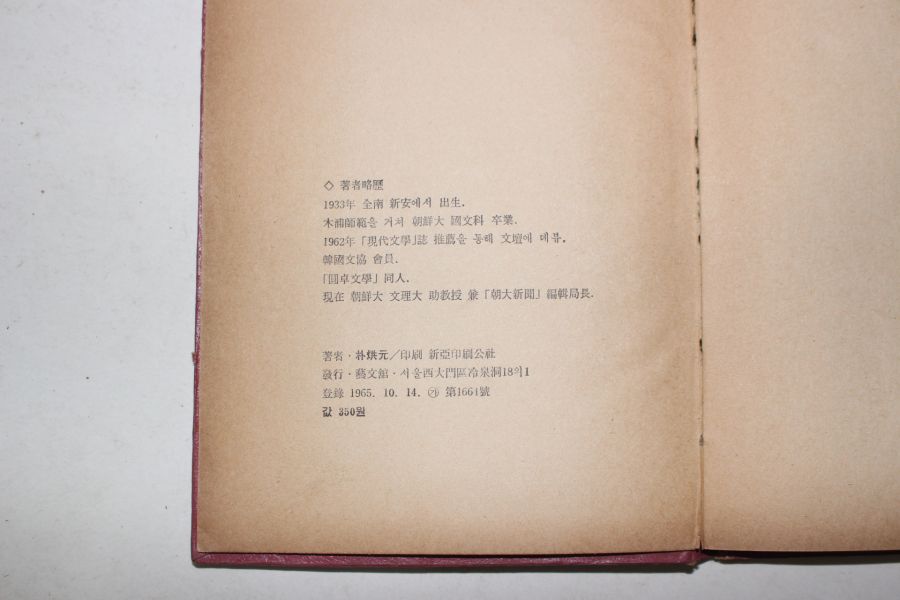 ◇ 著者略歷
1933年 全南 新安에서 出生.
木浦師範을 거쳐 朝鮮大 國文科 卒業.
1962年「現代文學」誌 推薦을 통해 文壇에 데뷰.
韓國文協 會員.
「圓卓文學」同人.
現在 朝鮮大 文理大 助敎授 兼「朝大新聞」編輯局長.
著者・朴烘元／印刷 新亞印刷公社
發行・藝文館・서울西大門區冷泉洞18의1
登錄 1965. 10. 14. ㉮ 第1664號
값 350원